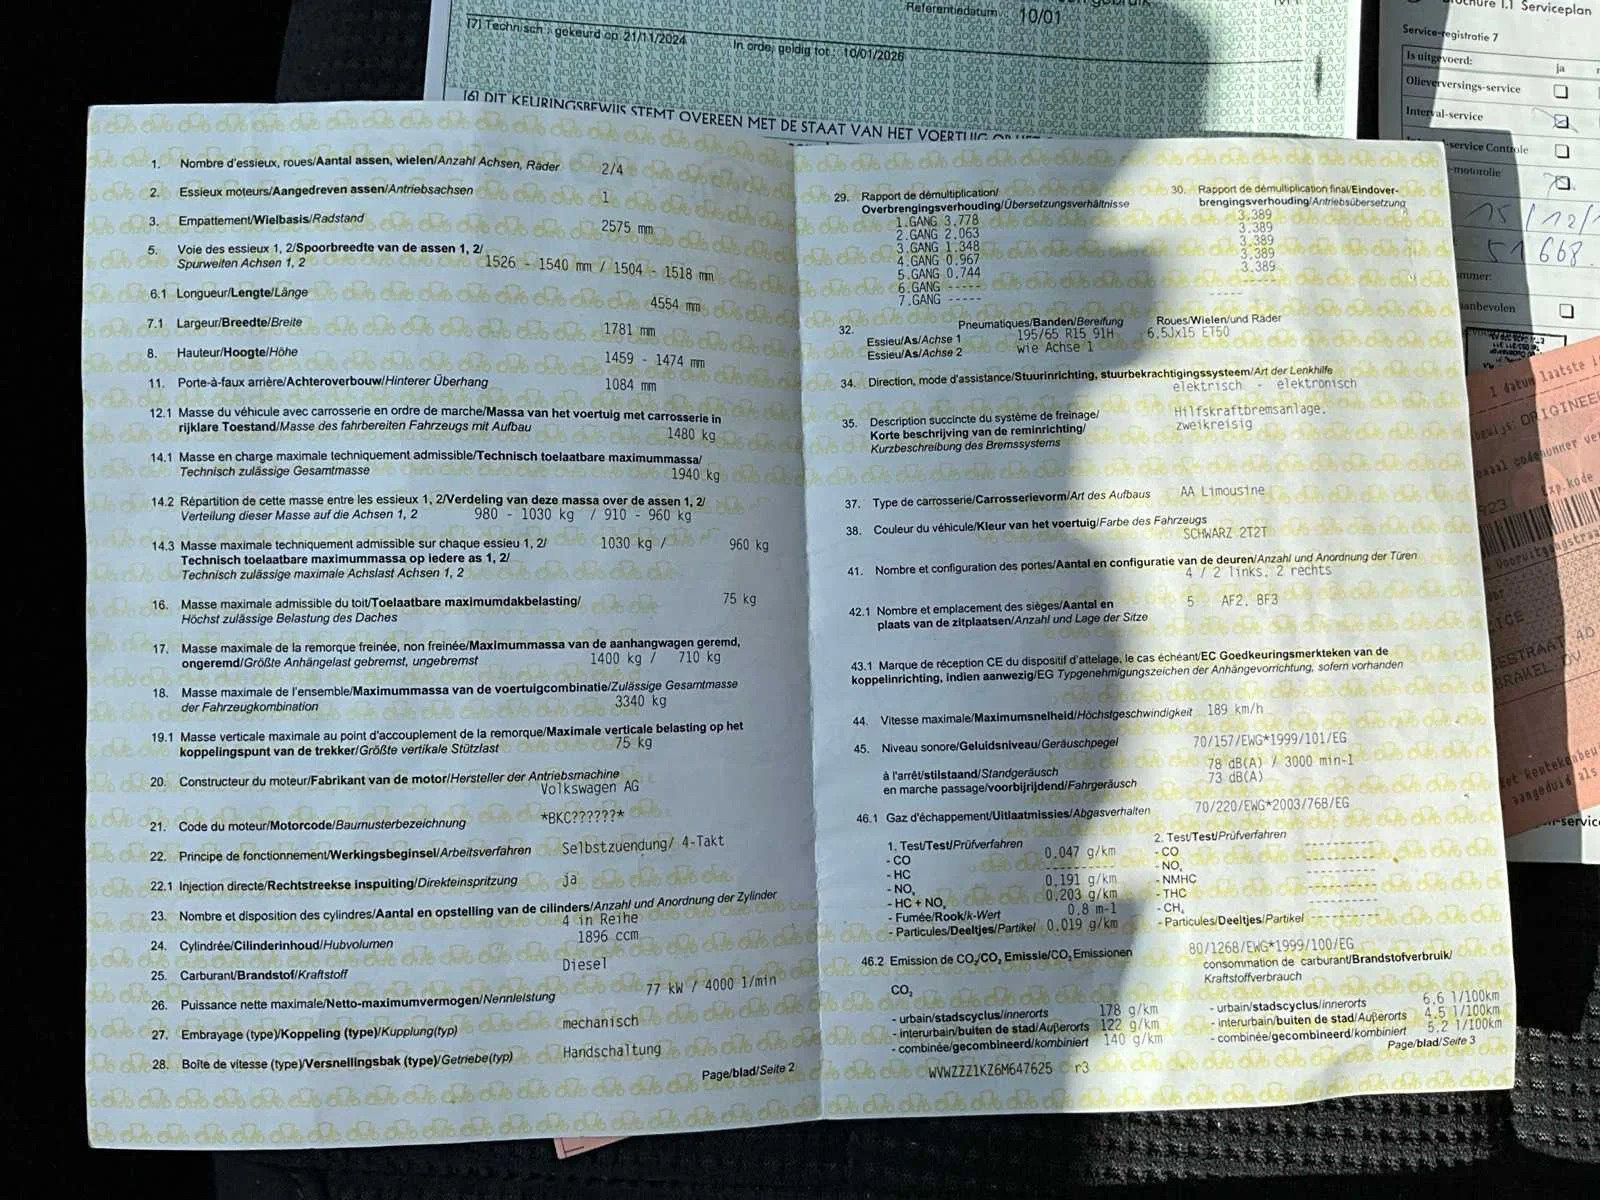 Referentiedatum : 10/01
[7] Technisch : gekeurd op 21/11/2024 In orde, geldig tot : 10/01/2026
[6] DIT KEURINGSBEWIJS STEMT OVEREEN MET DE STAAT VAN HET VOERTUIG OP HET
1. Nombre d'essieux, roues/Aantal assen, wielen/Anzahl Achsen, Räder 2/4
2. Essieux moteurs/Aangedreven assen/Antriebsachsen 1
3. Empattement/Wielbasis/Radstand 2575 mm
5. Voie des essieux 1, 2/Spoorbreedte van de assen 1, 2/
Spurweiten Achsen 1, 2 1526 - 1540 mm / 1504 - 1518 mm
6.1 Longueur/Lengte/Länge 4554 mm
7.1 Largeur/Breedte/Breite 1781 mm
8. Hauteur/Hoogte/Höhe 1459 - 1474 mm
11. Porte-à-faux arrière/Achteroverbouw/Hinterer Überhang 1084 mm
12.1 Masse du véhicule avec carrosserie en ordre de marche/Massa van het voertuig met carrosserie in
rijklare Toestand/Masse des fahrbereiten Fahrzeugs mit Aufbau 1480 kg
14.1 Masse en charge maximale techniquement admissible/Technisch toelaatbare maximummassa/
Technisch zulässige Gesamtmasse 1940 kg
14.2 Répartition de cette masse entre les essieux 1, 2/Verdeling van deze massa over de assen 1, 2/
Verteilung dieser Masse auf die Achsen 1, 2 980 - 1030 kg / 910 - 960 kg
14.3 Masse maximale techniquement admissible sur chaque essieu 1, 2/ 1030 kg / 960 kg
Technisch toelaatbare maximummassa op iedere as 1, 2/
Technisch zulässige maximale Achslast Achsen 1, 2
16. Masse maximale admissible du toit/Toelaatbare maximumdakbelasting/ 75 kg
Höchst zulässige Belastung des Daches
17. Masse maximale de la remorque freinée, non freinée/Maximummassa van de aanhangwagen geremd,
ongeremd/Größte Anhängelast gebremst, ungebremst 1400 kg / 710 kg
18. Masse maximale de l'ensemble/Maximummassa van de voertuigcombinatie/Zulässige Gesamtmasse
der Fahrzeugkombination 3340 kg
19.1 Masse verticale maximale au point d'accouplement de la remorque/Maximale verticale belasting op het
koppelingspunt van de trekker/Größte vertikale Stützlast 75 kg
20. Constructeur du moteur/Fabrikant van de motor/Hersteller der Antriebsmachine
Volkswagen AG
21. Code du moteur/Motorcode/Baumusterbezeichnung *BKC??????*
22. Principe de fonctionnement/Werkingsbeginsel/Arbeitsverfahren Selbstzuendung/ 4-Takt
22.1 Injection directe/Rechtstreekse inspuiting/Direkteinspritzung ja
23. Nombre et disposition des cylindres/Aantal en opstelling van de cilinders/Anzahl und Anordnung der Zylinder
4 in Reihe
24. Cylindrée/Cilinderinhoud/Hubvolumen 1896 ccm
25. Carburant/Brandstof/Kraftstoff Diesel
26. Puissance nette maximale/Netto-maximumvermogen/Nennleistung 77 kW / 4000 1/min
27. Embrayage (type)/Koppeling (type)/Kupplung(typ) mechanisch
28. Boîte de vitesse (type)/Versnellingsbak (type)/Getriebe(typ) Handschaltung
Page/blad/Seite 2
29. Rapport de démultiplication/
Overbrengingsverhouding/Übersetzungsverhältnisse
1.GANG 3.778
2.GANG 2.063
3.GANG 1.348
4.GANG 0.967
5.GANG 0.744
6.GANG -----
7.GANG -----
30. Rapport de démultiplication final/Eindover-
brengingsverhouding/Antriebsübersetzung
3.389
3.389
3.389
3.389
3.389
-----
-----
32. Pneumatiques/Banden/Bereifung Roues/Wielen/und Räder
Essieu/As/Achse 1 195/65 R15 91H 6,5Jx15 ET50
Essieu/As/Achse 2 wie Achse 1
34. Direction, mode d'assistance/Stuurinrichting, stuurbekrachtigingssysteem/Art der Lenkhilfe
elektrisch - elektronisch
35. Description succincte du système de freinage/ Hilfskraftbremsanlage.
Korte beschrijving van de reminrichting/ zweikreisig
Kurzbeschreibung des Bremssystems
37. Type de carrosserie/Carrosserievorm/Art des Aufbaus AA Limousine
38. Couleur du véhicule/Kleur van het voertuig/Farbe des Fahrzeugs
SCHWARZ 2T2T
41. Nombre et configuration des portes/Aantal en configuratie van de deuren/Anzahl und Anordnung der Türen
4 / 2 links, 2 rechts
42.1 Nombre et emplacement des sièges/Aantal en 5 AF2, BF3
plaats van de zitplaatsen/Anzahl und Lage der Sitze
43.1 Marque de réception CE du dispositif d'attelage, le cas échéant/EC Goedkeuringsmerkteken van de
koppelinrichting, indien aanwezig/EG Typgenehmigungszeichen der Anhängevorrichtung, sofern vorhanden
44. Vitesse maximale/Maximumsnelheid/Höchstgeschwindigkeit 189 km/h
45. Niveau sonore/Geluidsniveau/Geräuschpegel 70/157/EWG*1999/101/EG
à l'arrêt/stilstaand/Standgeräusch 78 dB(A) / 3000 min-1
en marche passage/voorbijrijdend/Fahrgeräusch 73 dB(A)
46.1 Gaz d'échappement/Uitlaatmissies/Abgasverhalten 70/220/EWG*2003/76B/EG
1. Test/Test/Prüfverfahren
- CO 0.047 g/km
- HC -----
- NOx 0.191 g/km
- HC + NOx 0.203 g/km
- Fumée/Rook/k-Wert 0.8 m-1
- Particules/Deeltjes/Partikel 0.019 g/km
2. Test/Test/Prüfverfahren
- CO ----------
- NOx ----------
- NMHC ----------
- THC ----------
- CH4 ----------
- Particules/Deeltjes/Partikel ----------
46.2 Emission de CO2/CO2 Emissie/CO2 Emissionen 80/1268/EWG*1999/100/EG
CO2
- urbain/stadscyclus/innerorts 178 g/km
- interurbain/buiten de stad/Außerorts 122 g/km
- combinée/gecombineerd/kombiniert 140 g/km
consommation de carburant/Brandstofverbruik/
Kraftstoffverbrauch
- urbain/stadscyclus/innerorts 6.6 l/100km
- interurbain/buiten de stad/Außerorts 4.5 l/100km
- combinée/gecombineerd/kombiniert 5.2 l/100km
Page/blad/Seite 3
WVWZZZ1KZ6M647625 r3
Brochure 1.1 Serviceplan
Service-registratie 7
Is uitgevoerd: ja
Olieverversings-service
Interval-service
-service Controle
-motorolie
15/12/1
51 668
mmer:
aanbevolen
1 datum laatste i
bewijs: ORIGINEE
Exp.kode
923
BRAKEL
aangeduid als
-service